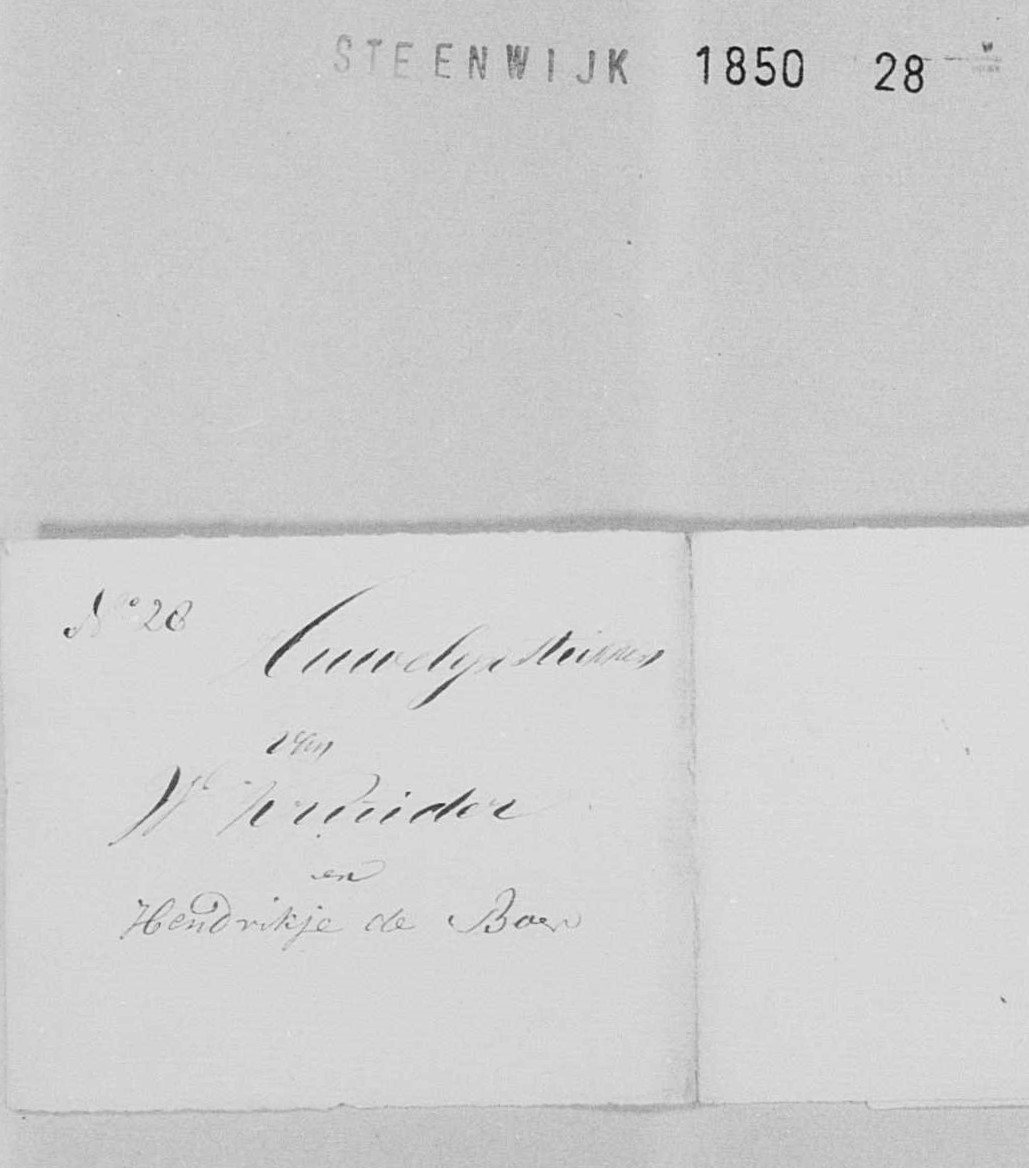 STEENWIJK 1850 28
No 28
Huwelijksstukken
van
W Kruider
en
Hendrikje de Boer